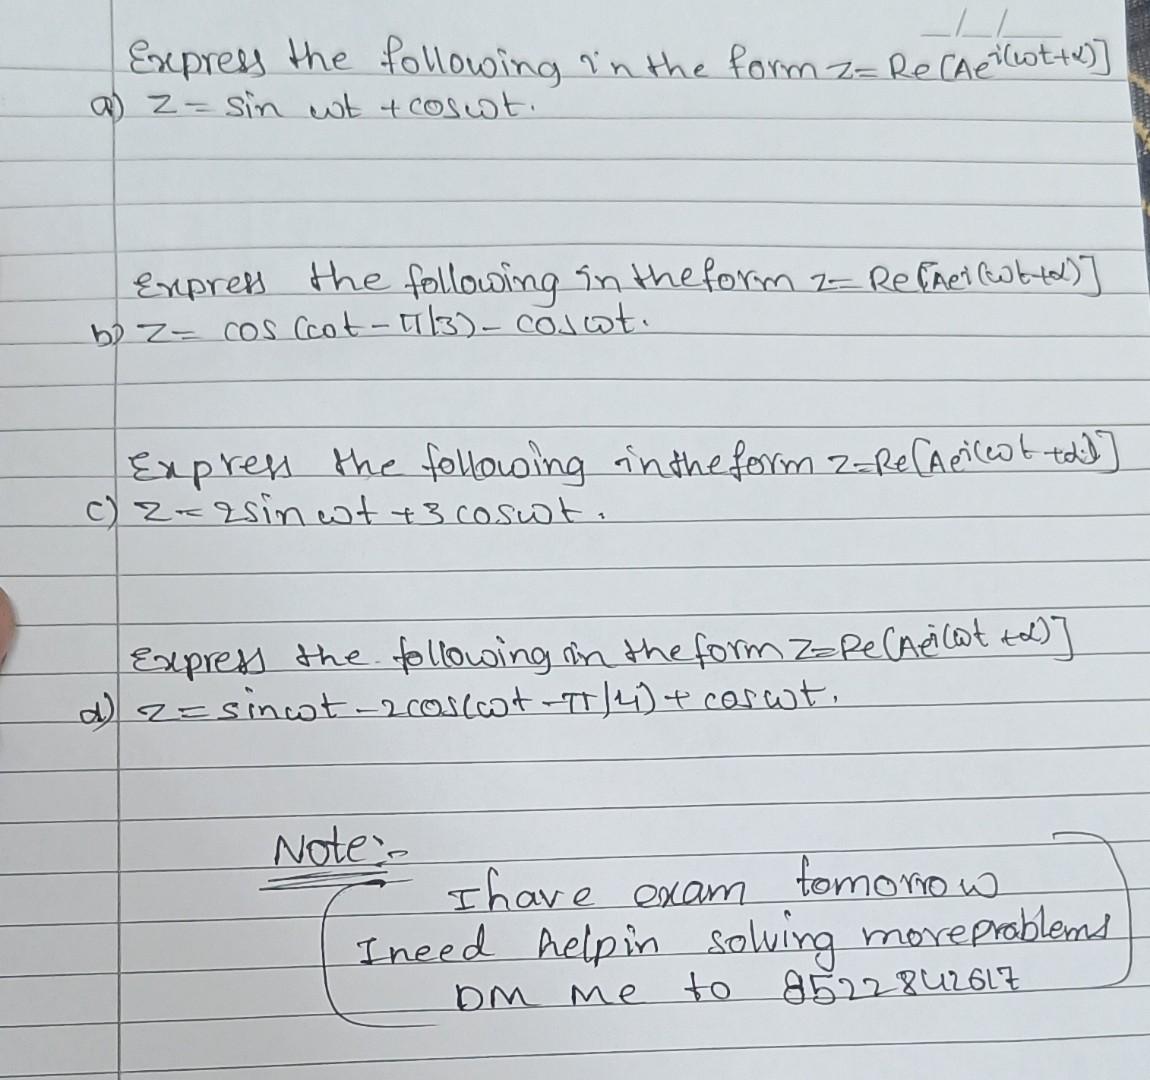 Express the following in the form z=Re[Ae^i(ωt+α)]
a) z = sin ωt + cosωt.
Express the following in the form z=Re[Aei(ωt+α)]
b) z= cos(ωt-π/3)- cosωt.
Express the following in the form z=Re[Aei(ωt+α)]
c) z=2sinωt+3cosωt.
Express the following in the form z=Re[Aei(ωt+α)]
d) z=sinωt-2cos(ωt-π/4)+cosωt.
Note:-
I have exam tomorrow
I need help in solving more problems
DM Me to 8522842617